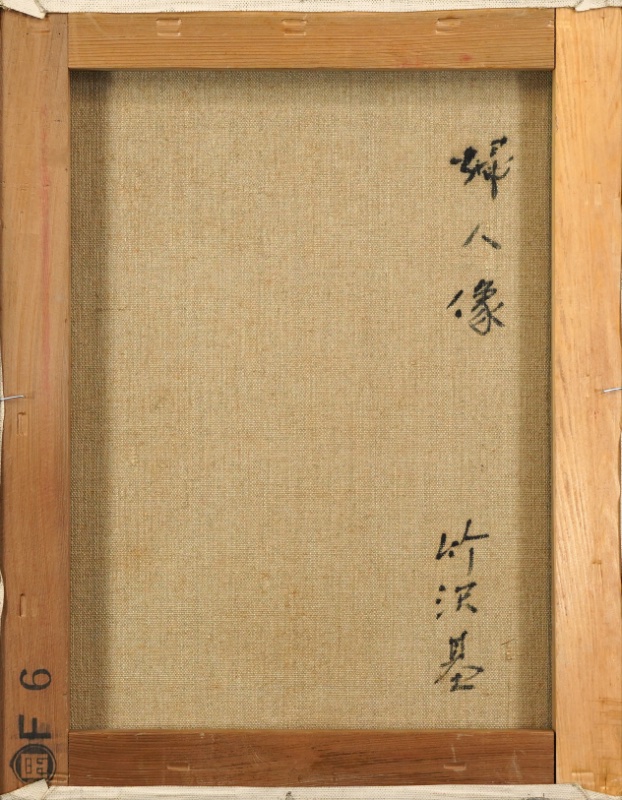 婦人像
竹沢基
F6